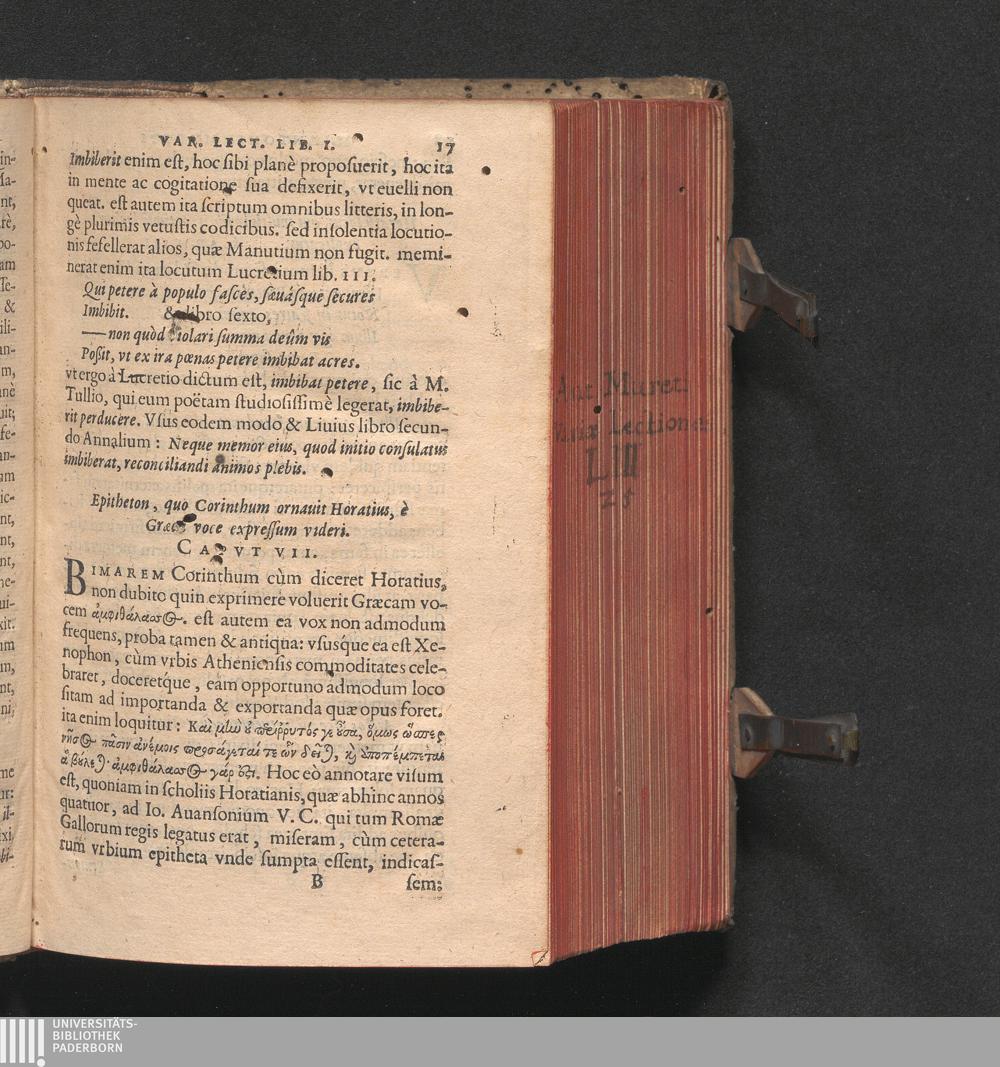 VAR. LECT. LIB. I. 17
Imbiberit enim est, hoc sibi planè proposuerit, hoc ita
in mente ac cogitatione sua defixerit, vt euelli non
queat. est autem ita scriptum omnibus litteris, in lon-
gè plurimis vetustis codicibus. sed insolentia locutio-
nis fefellerat alios, quæ Manutium non fugit. memi-
nerat enim ita locutum Lucretium lib. III.
Qui petere à populo fasces, sæuásque secures
Imbibit. & libro sexto,
—non quòd violari summa deûm vis
Possit, vt ex ira pœnas petere imbibat acres.
vt ergo à Lucretio dictum est, imbibat petere, sic à M.
Tullio, qui eum poëtam studiosissimè legerat, imbibe-
rit perducere. Vsus eodem modo & Liuius libro secun-
do Annalium : Neque memor eius, quod initio consulatus
imbiberat, reconciliandi animos plebis.
Epitheton, quo Corinthum ornauit Horatius, è
Græca voce expressum videri.
CAPVT VII.
BIMAREM Corinthum cùm diceret Horatius,
non dubito quin exprimere voluerit Græcam vo-
cem ἀμφιθάλαοσος. est autem ea vox non admodum
frequens, proba tamen & antiqua: vsusque ea est Xe-
nophon, cùm vrbis Atheniensis commoditates cele-
braret, doceretque, eam opportuno admodum loco
sitam ad importanda & exportanda quæ opus foret.
ita enim loquitur : Καὶ μὴν οὐ περίῤῥυτός γε οὖσα, ὅμως ὥσπερ
νῆσος πᾶσιν ἀνέμοις προσάγεταί τε ὧν δεῖται, καὶ ἀποπέμπεται
ἃ βούλεται· ἀμφιθάλαοσος γάρ ὅξι. Hoc eò annotare visum
est, quoniam in scholiis Horatianis, quæ abhinc annos
quatuor, ad Io. Auansonium V. C. qui tum Romæ
Gallorum regis legatus erat, miseram, cùm cetera-
rum vrbium epitheta vnde sumpta essent, indicas-
B sem:
Ant Mureti
Lectiones
LIII
25
UNIVERSITÄTS-
BIBLIOTHEK
PADERBORN